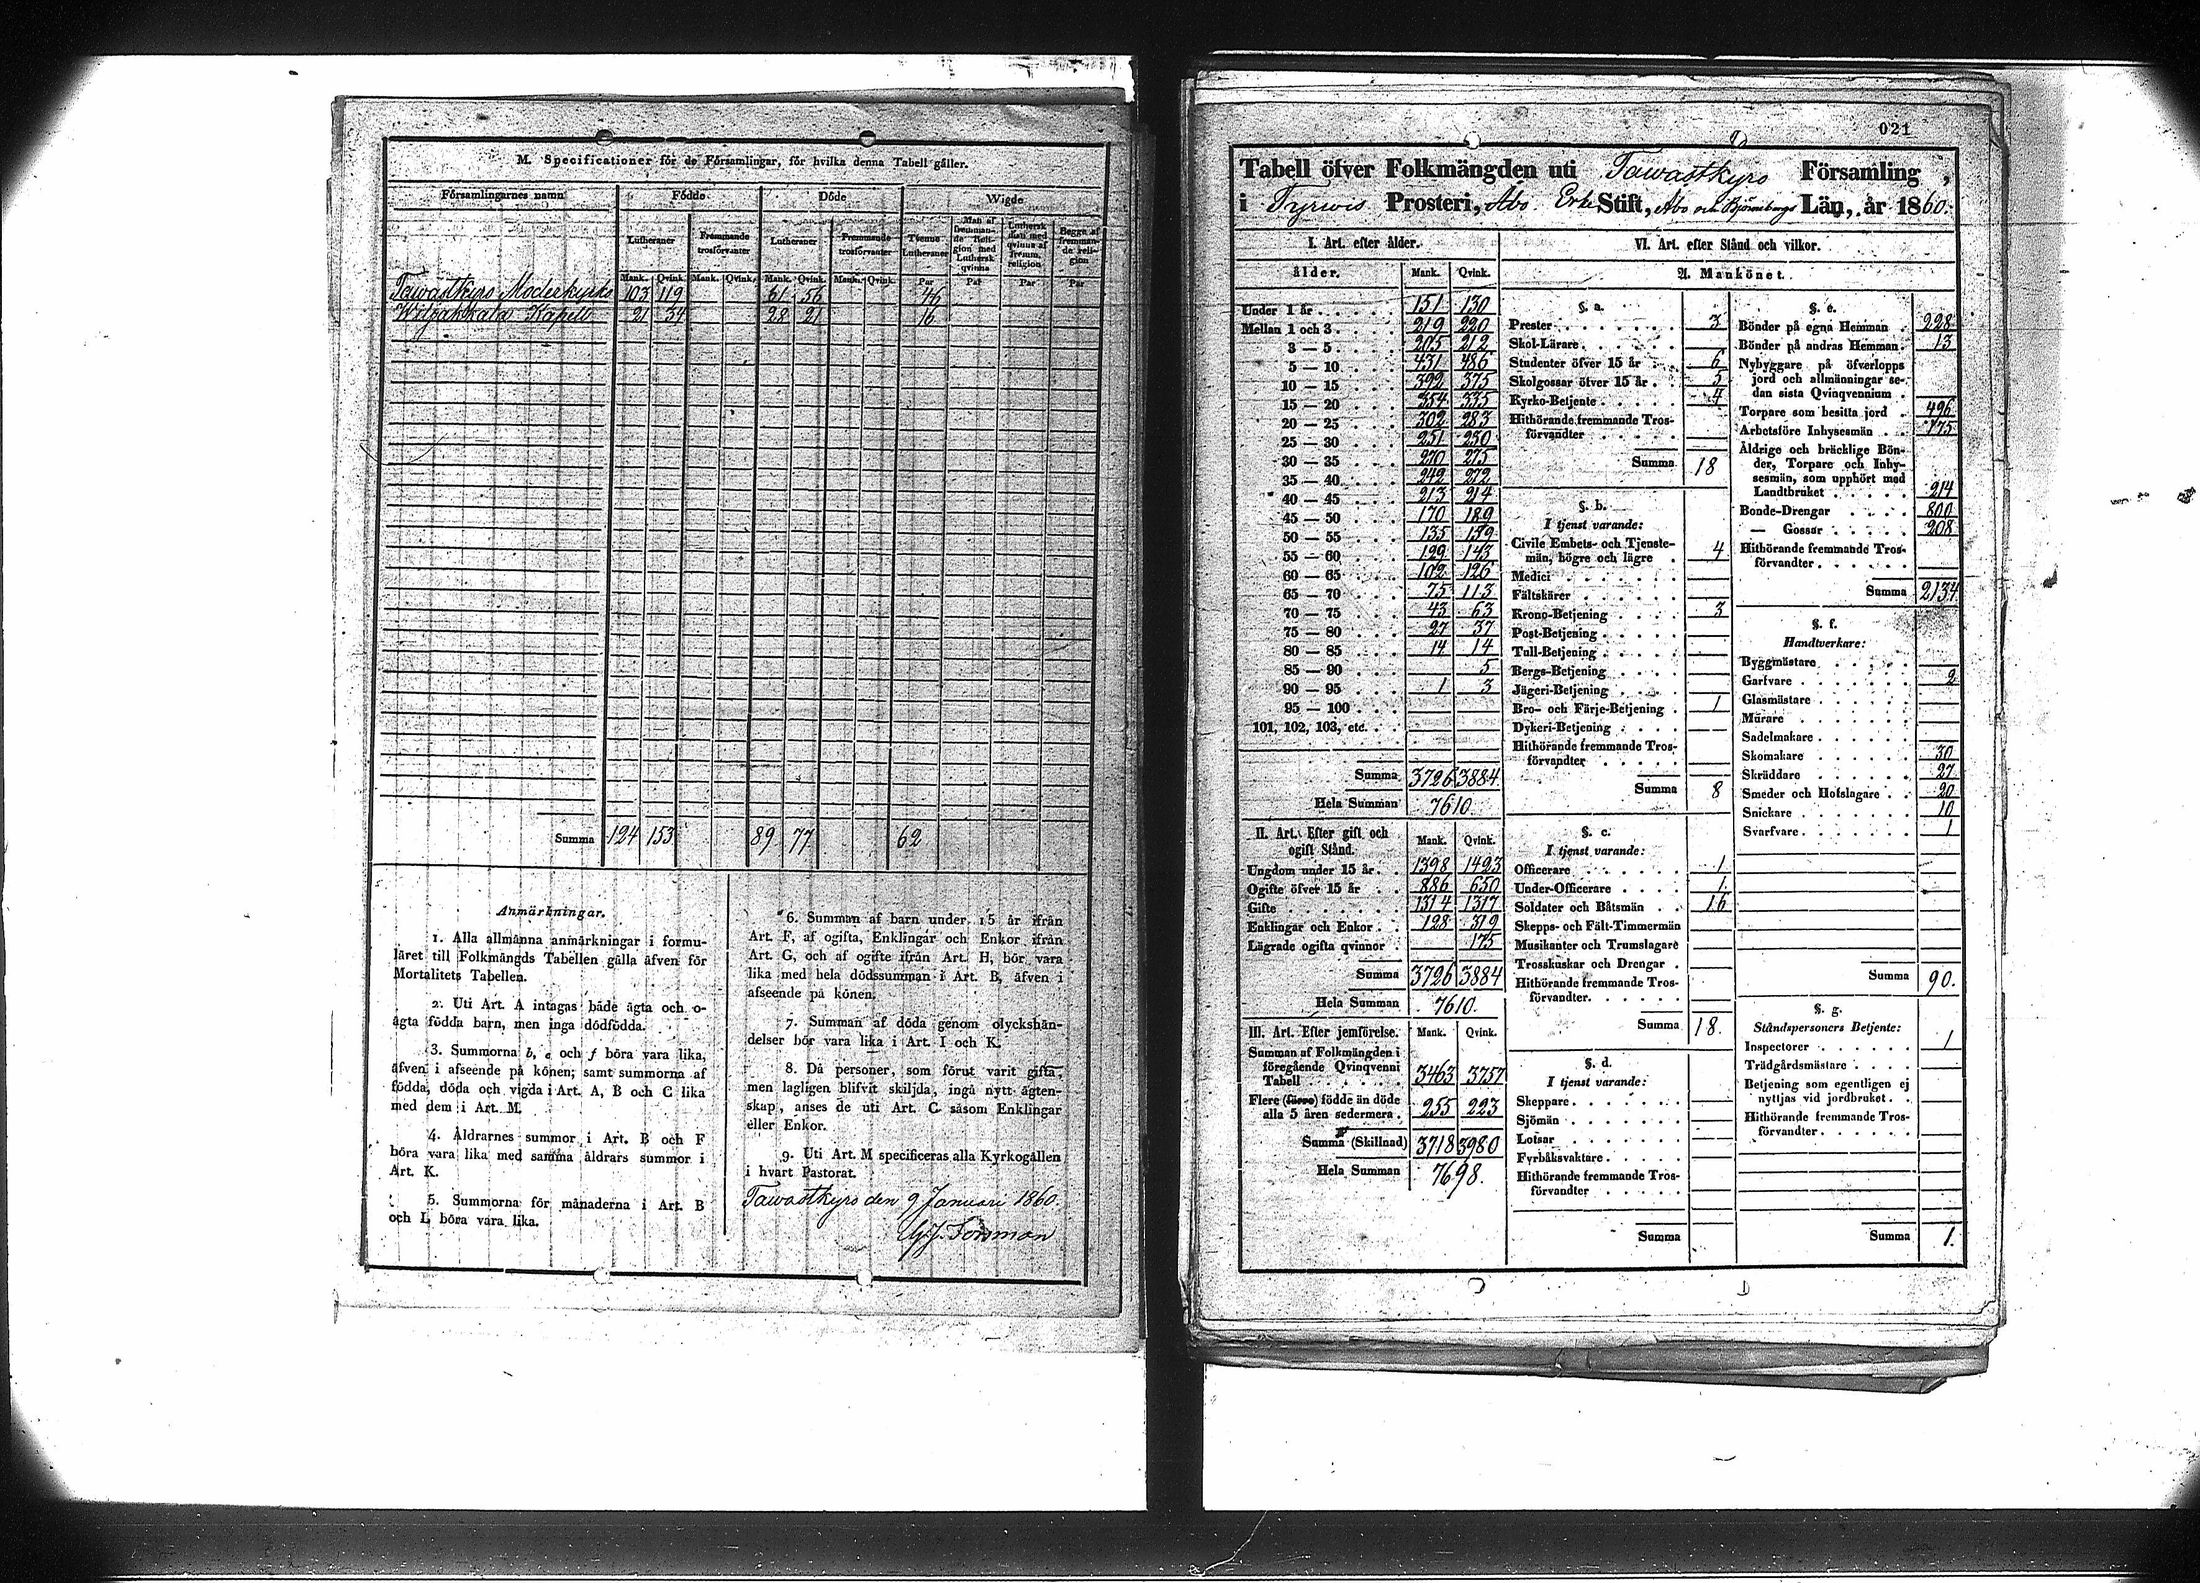 M. Specificationer för de Församlingar, för hvilka denna Tabell gäller.
Församlingarnes namn Födde Döde Wigde
Lutheraner Fremmande trosförvanter Lutheraner Fremmande trosförvanter Tvenne Lutheraner Man af fremmande Religion med Luthersk qvinna Luthersk man med qvinna af fremm. religion Begge af fremmande religion
Mank. Qvink. Mank. Qvink. Mank. Qvink. Mank. Qvink. Par Par Par Par
Tawastkyro Moderkyrko 103 119 61 56 46
Wiljakkala Kapell 21 34 28 21 16
Summa 124 153 89 77 62
Anmärkningar.
1. Alla allmänna anmärkningar i formu-
läret till Folkmängds Tabellen gälla äfven för
Mortalitets Tabellen.
2. Uti Art. A intagas både ägta och o-
ägta födda barn, men inga dödfödda.
3. Summorna b, e och f böra vara lika,
äfven i afseende på könen; samt summorna af
födda, döda och vigda i Art. A, B och C lika
med dem i Art. M.
4. Åldrarnes summor i Art. B och F
böra vara lika med samma åldrars summor i
Art. K.
5. Summorna för månaderna i Art. B
och L böra vara lika.
6. Summan af barn under 15 år ifrån
Art. F, af ogifta, Enklingar och Enkor ifrån
Art. G, och af gifte ifrån Art. H, bör vara
lika med hela dödssumman i Art. B, äfven i
afseende på könen.
7. Summan af döda genom olyckshän-
delser bör vara lika i Art. I och K.
8. Då personer, som förut varit gifta,
men lagligen blifvit skiljda, ingå nytt ägten-
skap, anses de uti Art. C såsom Enklingar
eller Enkor.
9. Uti Art. M specificeras alla Kyrkogällen
i hvart Pastorat.
Tawastkyro den 9 Januari 1860.
G.J. Forsman
021
Tabell öfver Folkmängden uti Tawastkyro Församling,
i Tyrwis Prosteri, Åbo Erke Stift, Åbo och Björneborgs Län, år 1860.
I. Art. efter ålder.
ålder. Mank. Qvink.
Under 1 år 151 130
Mellan 1 och 3 219 220
3 — 5 205 212
5 — 10 431 486
10 — 15 392 375
15 — 20 354 335
20 — 25 302 283
25 — 30 251 250
30 — 35 270 275
35 — 40 242 272
40 — 45 213 214
45 — 50 170 189
50 — 55 135 159
55 — 60 129 143
60 — 65 102 126
65 — 70 75 113
70 — 75 43 63
75 — 80 27 37
80 — 85 14 14
85 — 90 5
90 — 95 1 3
95 — 100
101, 102, 103, etc.
Summa 3726 3884
Hela Summan 7610.
II. Art. Efter gift och ogift Stånd. Mank. Qvink.
Ungdom under 15 år 1398 1423
Ogifte öfver 15 år 886 650
Gifte 1314 1317
Enklingar och Enkor 128 319
Lägrade ogifta qvinnor 175
Summa 3726 3884
Hela Summan 7610.
III. Art. Efter jemförelse. Mank. Qvink.
Summan af Folkmängden i
föregående Qvinqvenni
Tabell 3463 3757
Flere (färre) födde än döde
alla 5 åren sedermera 255 223
Summa (Skillnad) 3718 3980
Hela Summan 7698.
VI. Art. efter Stånd och vilkor.
A. Mankönet.
§. a.
Prester 3
Skol-Lärare
Studenter öfver 15 år 6
Skolgossar öfver 15 år 5
Kyrko-Betjente 4
Hithörande fremmande Tros-
förvandter
Summa 18
§. b.
I tjenst varande:
Civile Embets- och Tjenste-
män, högre och lägre 4
Medici
Fältskärer
Krono-Betjening 3
Post-Betjening
Tull-Betjening
Bergs-Betjening
Jägeri-Betjening
Bro- och Färje-Betjening 1
Dykeri-Betjening
Hithörande fremmande Tros-
förvandter
Summa 8
§. c.
I tjenst varande:
Officerare 1
Under-Officerare 1
Soldater och Båtsmän 16
Skepps- och Fält-Timmermän
Musikanter och Trumslagare
Trosskuskar och Drengar
Hithörande fremmande Tros-
förvandter
Summa 18.
§. d.
I tjenst varande:
Skeppare
Sjömän
Lotsar
Fyrbåksvaktare
Hithörande fremmande Tros-
förvandter
Summa
§. e.
Bönder på egna Hemman 228
Bönder på andras Hemman 13
Nybyggare på öfverlopps
jord och allmänningar se-
dan sista Qvinqvennium
Torpare som besitta jord 496
Arbetsföre Inhysesmän 175
Åldrige och bräcklige Bön-
der, Torpare och Inhy-
sesmän, som upphört med
Landtbruket 214
Bonde-Drengar 800
— Gossar 208
Hithörande fremmande Tros-
förvandter
Summa 2134
§. f.
Handtverkare:
Byggmästare
Garfvare 2
Glasmästare
Murare
Sadelmakare
Skomakare 30
Skräddare 27
Smeder och Hofslagare 20
Snickare 10
Svarfvare 1
Summa 90.
§. g.
Ståndspersoners Betjente:
Inspectorer 1
Trädgårdsmästare
Betjening som egentligen ej
nyttjas vid jordbruket
Hithörande fremmande Tros-
förvandter
Summa 1.